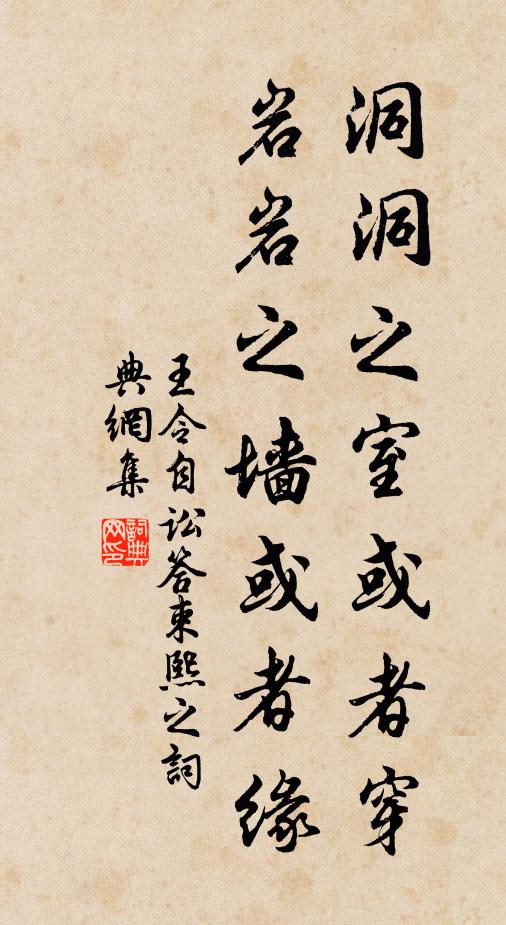 洞洞之室或者穿
岩岩之墙或者缘
王令自訟答束熙之詞
典網集
詞典網印